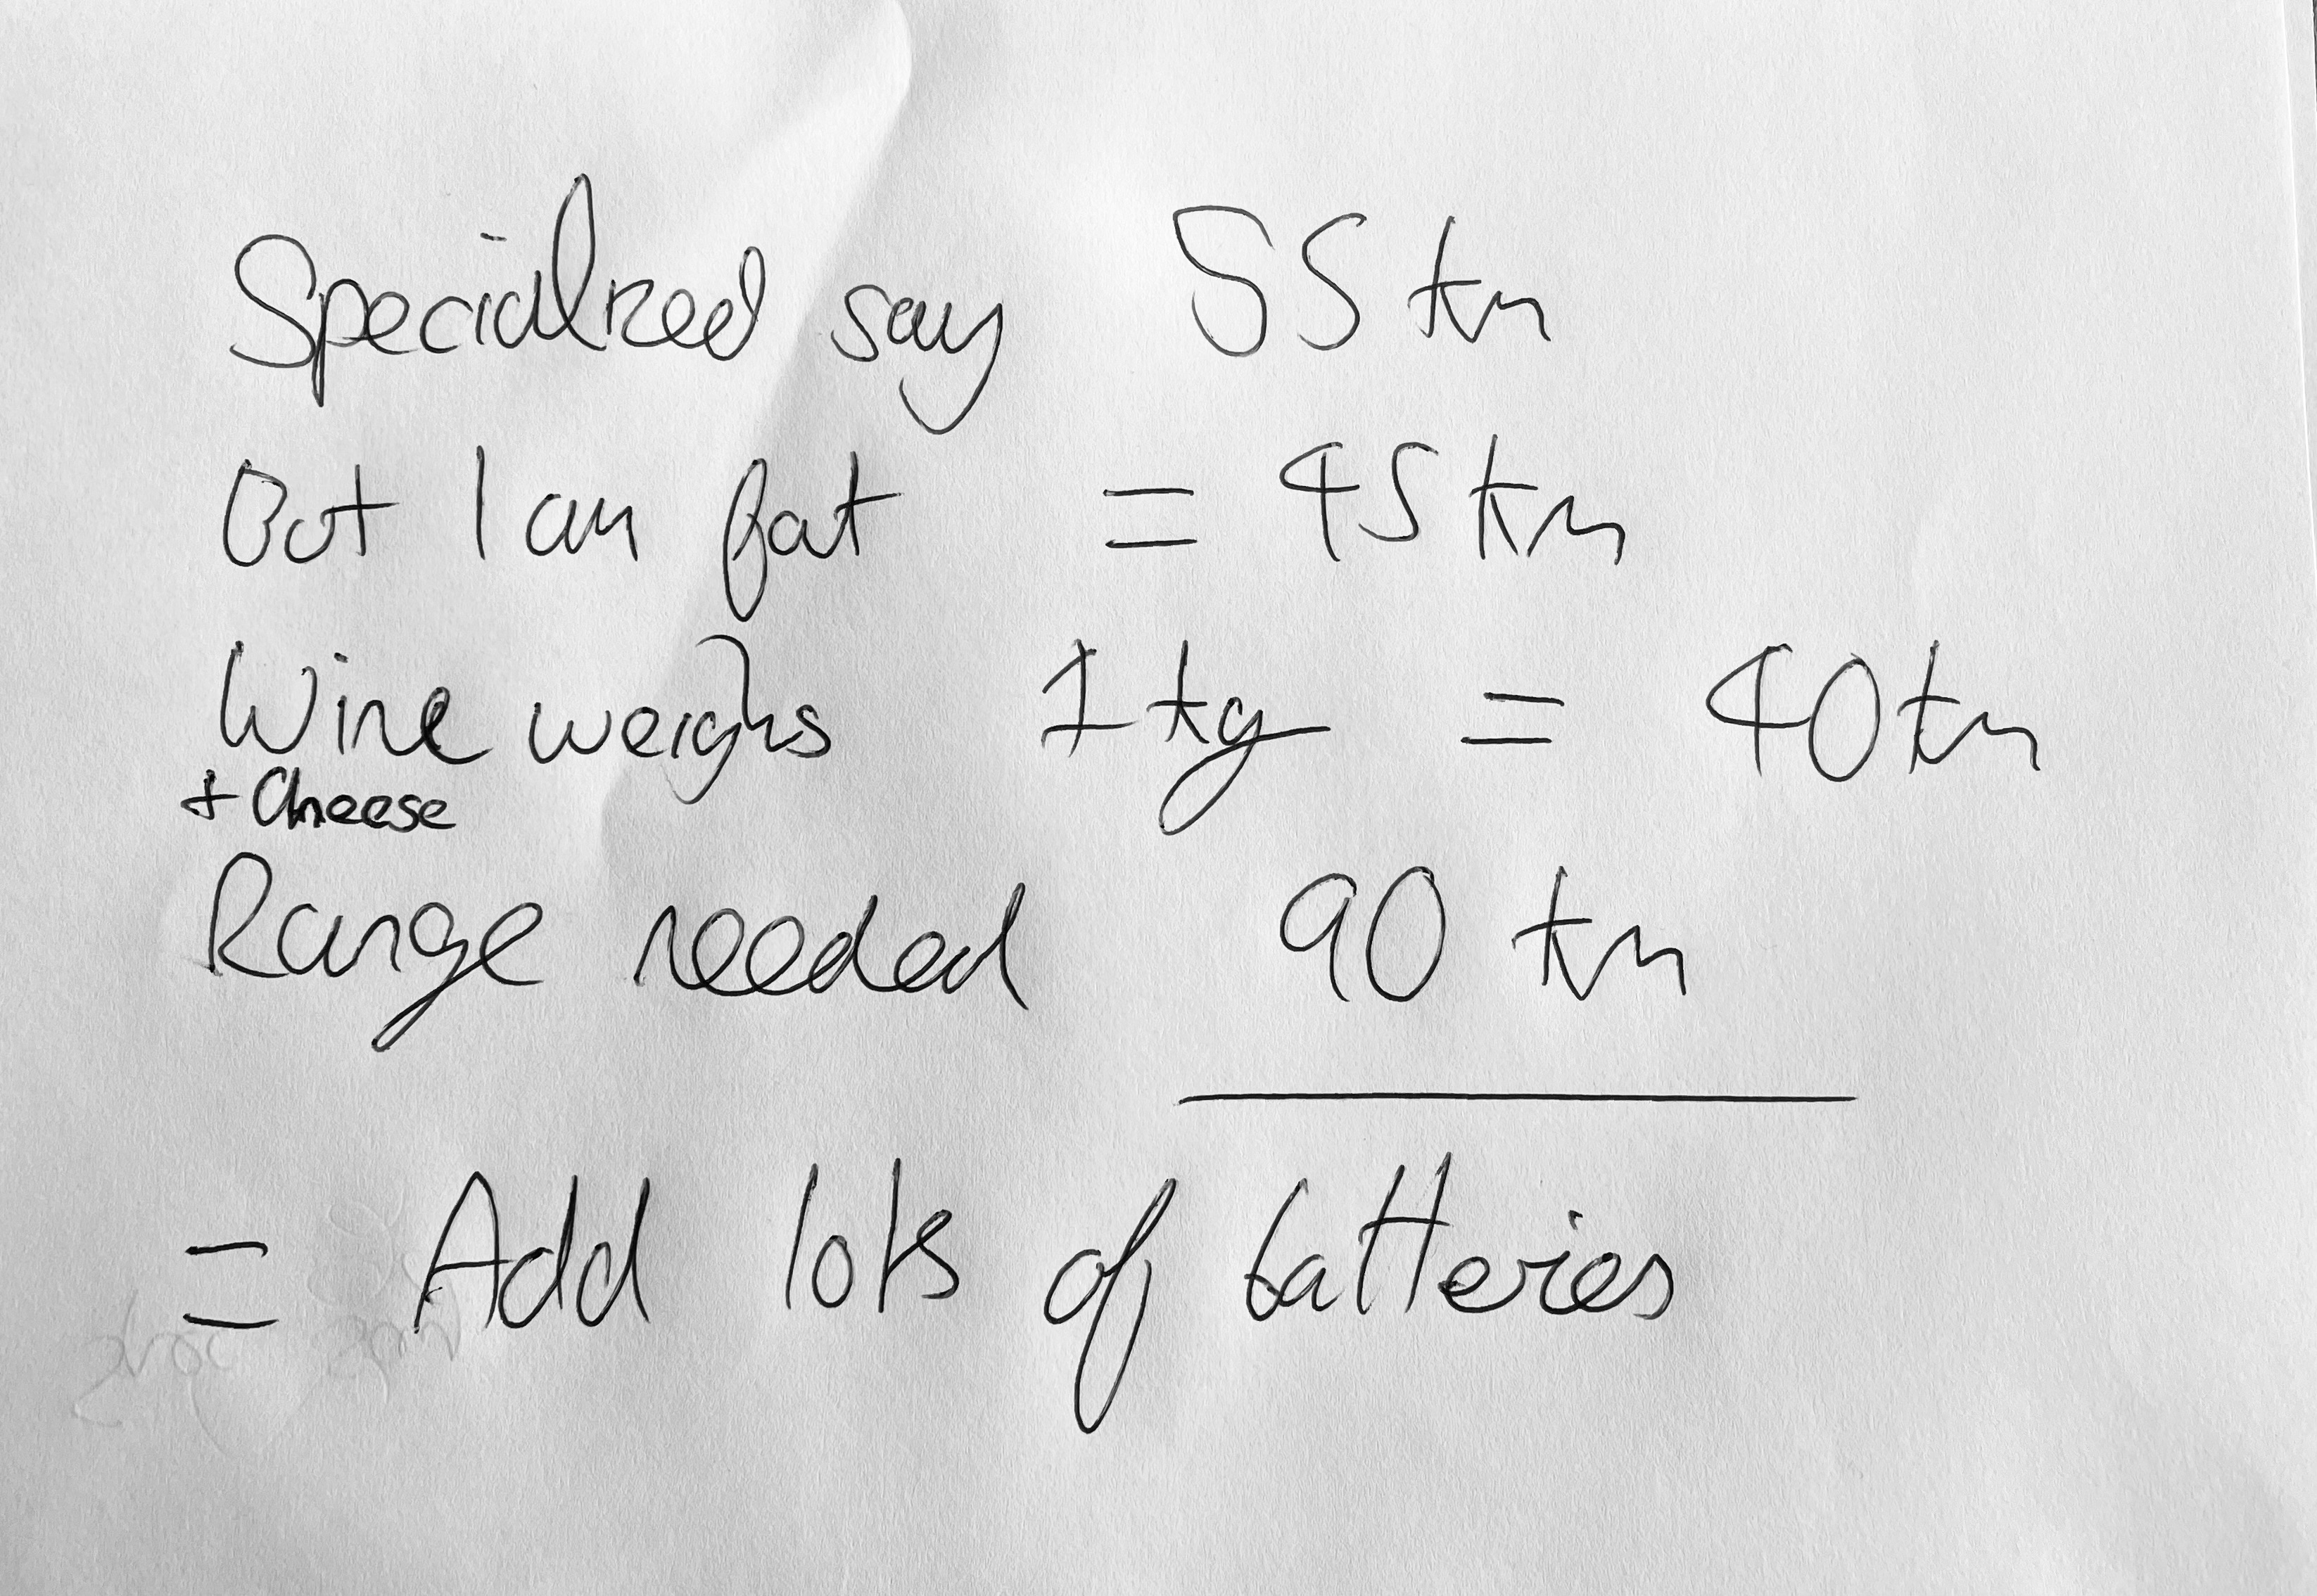 Specialized say 55 km
But I am fat = 45 km
Wine weighs 1 kg = 40 km
+ Cheese
Range needed 90 km
= Add lots of batteries